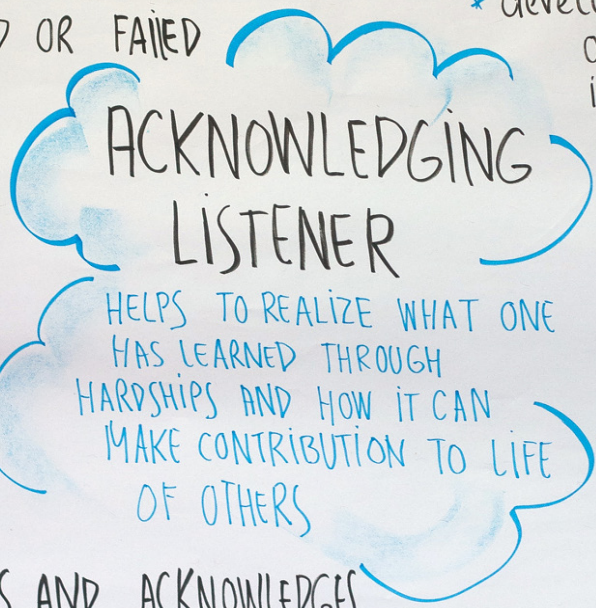 OR FAILED
ACKNOWLEDGING
LISTENER
HELPS TO REALIZE WHAT ONE
HAS LEARNED THROUGH
HARDSHIPS AND HOW IT CAN
MAKE CONTRIBUTION TO LIFE
OF OTHERS
AND ACKNOWLEDGES